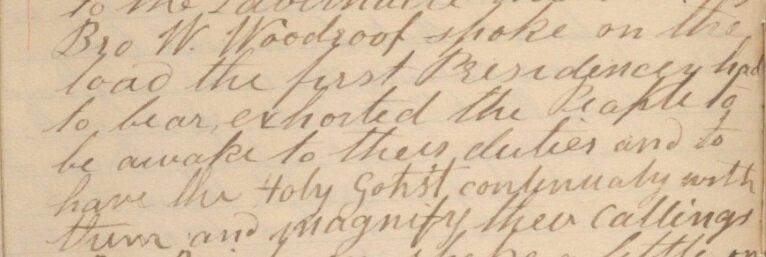 to the
Bro W. Woodroof spoke on the
load the first Presidencey had
to bear, exhorted the People to
be awake to theis duties and to
have the Holy Gohst continualy with
them and magnify their Callings
a little on